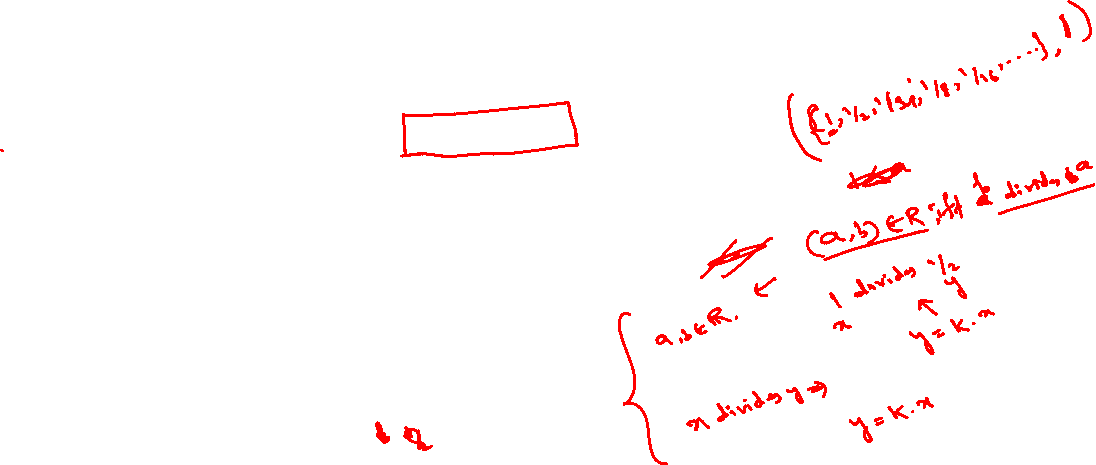 ({1, 1/2, 1/4, 1/8, 1/16, ....}, 1)
(a,b) ∈ R iff b divides a
1 divides 1/2
x y
a,b ∈ R.
y = K.x
x divides y ⇒
y = K.x